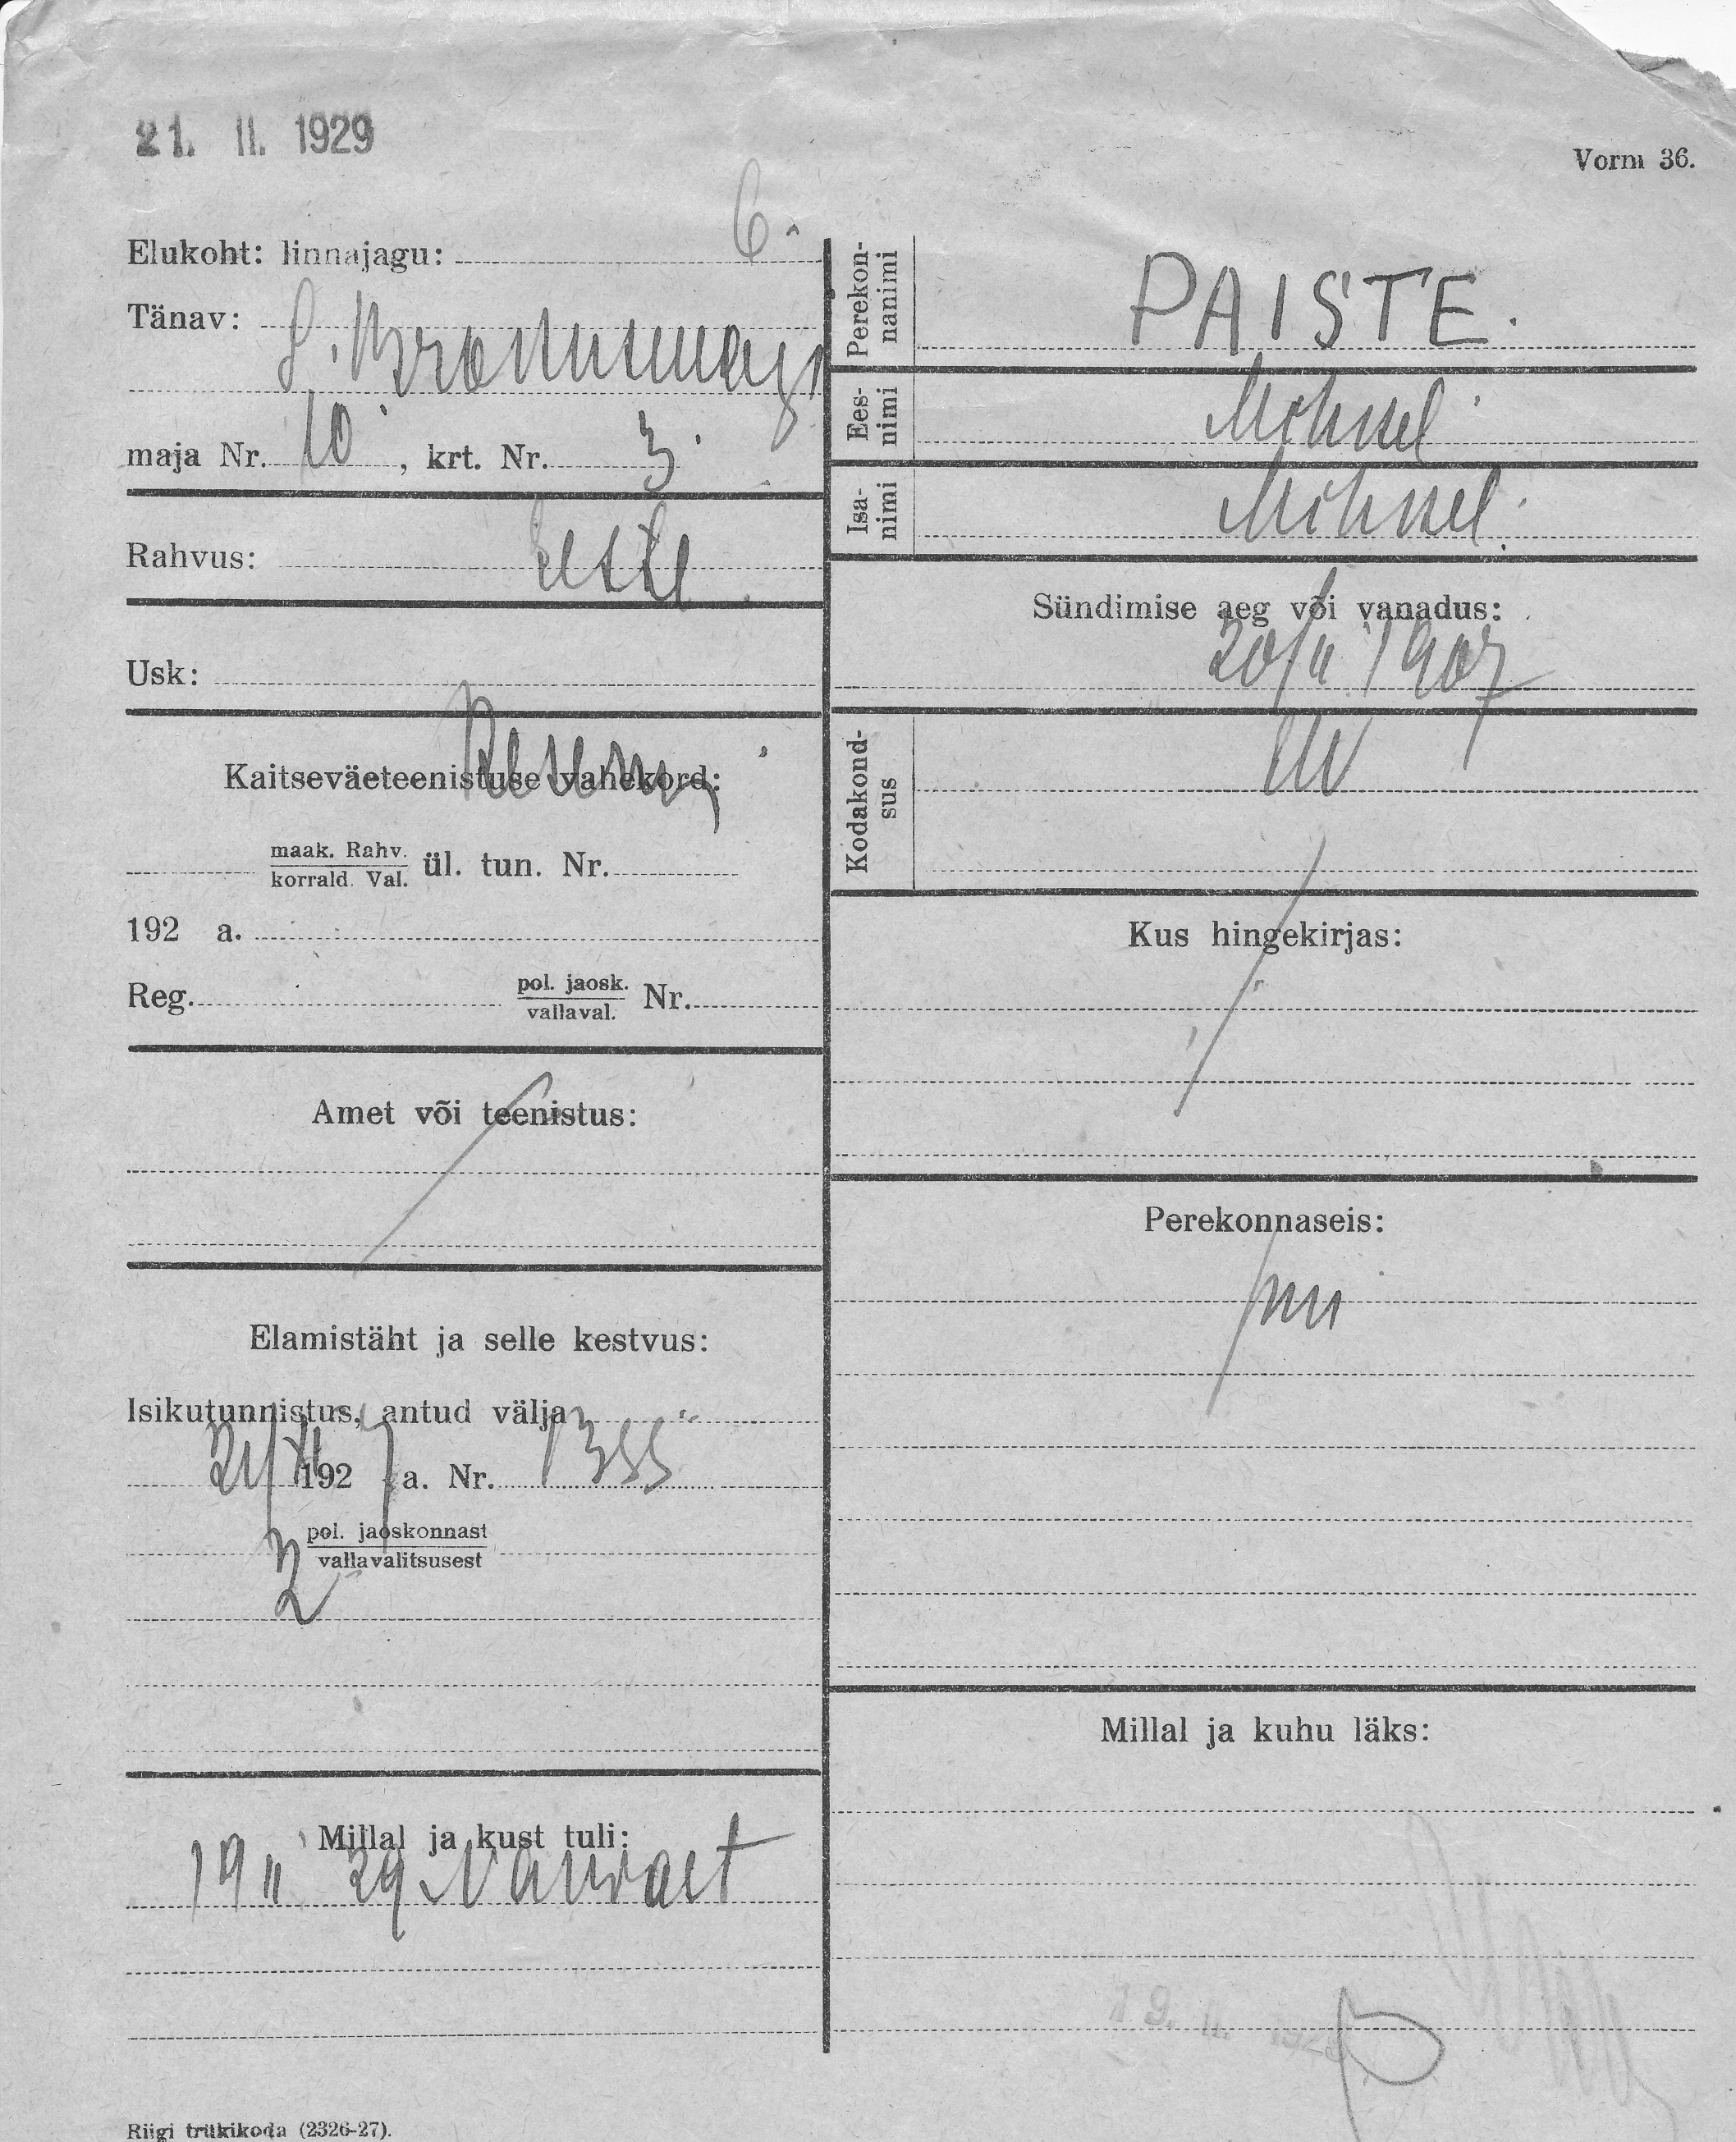 21. II. 1929
Vorm 36.
Elukoht: linnajagu: 6.
Tänav:
maja Nr. 10, krt. Nr. 3.
Rahvus: eesti.
Usk:
Kaitseväeteenistuse vahekord:
maak. Rahv.
korrald. Val.
ül. tun. Nr.
192 a.
Reg. pol. jaosk.
vallaval.
Nr.
Amet või teenistus:
Elamistäht ja selle kestvus:
Isikutunnistus, antud välja
21/XI 192 7 a. Nr. 1355
2 pol. jaoskonnast
vallavalitsusest
Millal ja kust tuli:
19 II 29 Narvast
Riigi trükikoda (2326-27).
Perekon-
nanimi
PAISTE.
Ees-
nimi
Mihkel
Isa-
nimi
Mihkel.
Sündimise aeg või vanadus:
20/II 1907
Kodakond-
sus
EW
Kus hingekirjas:
Perekonnaseis:
Millal ja kuhu läks:
19. II.